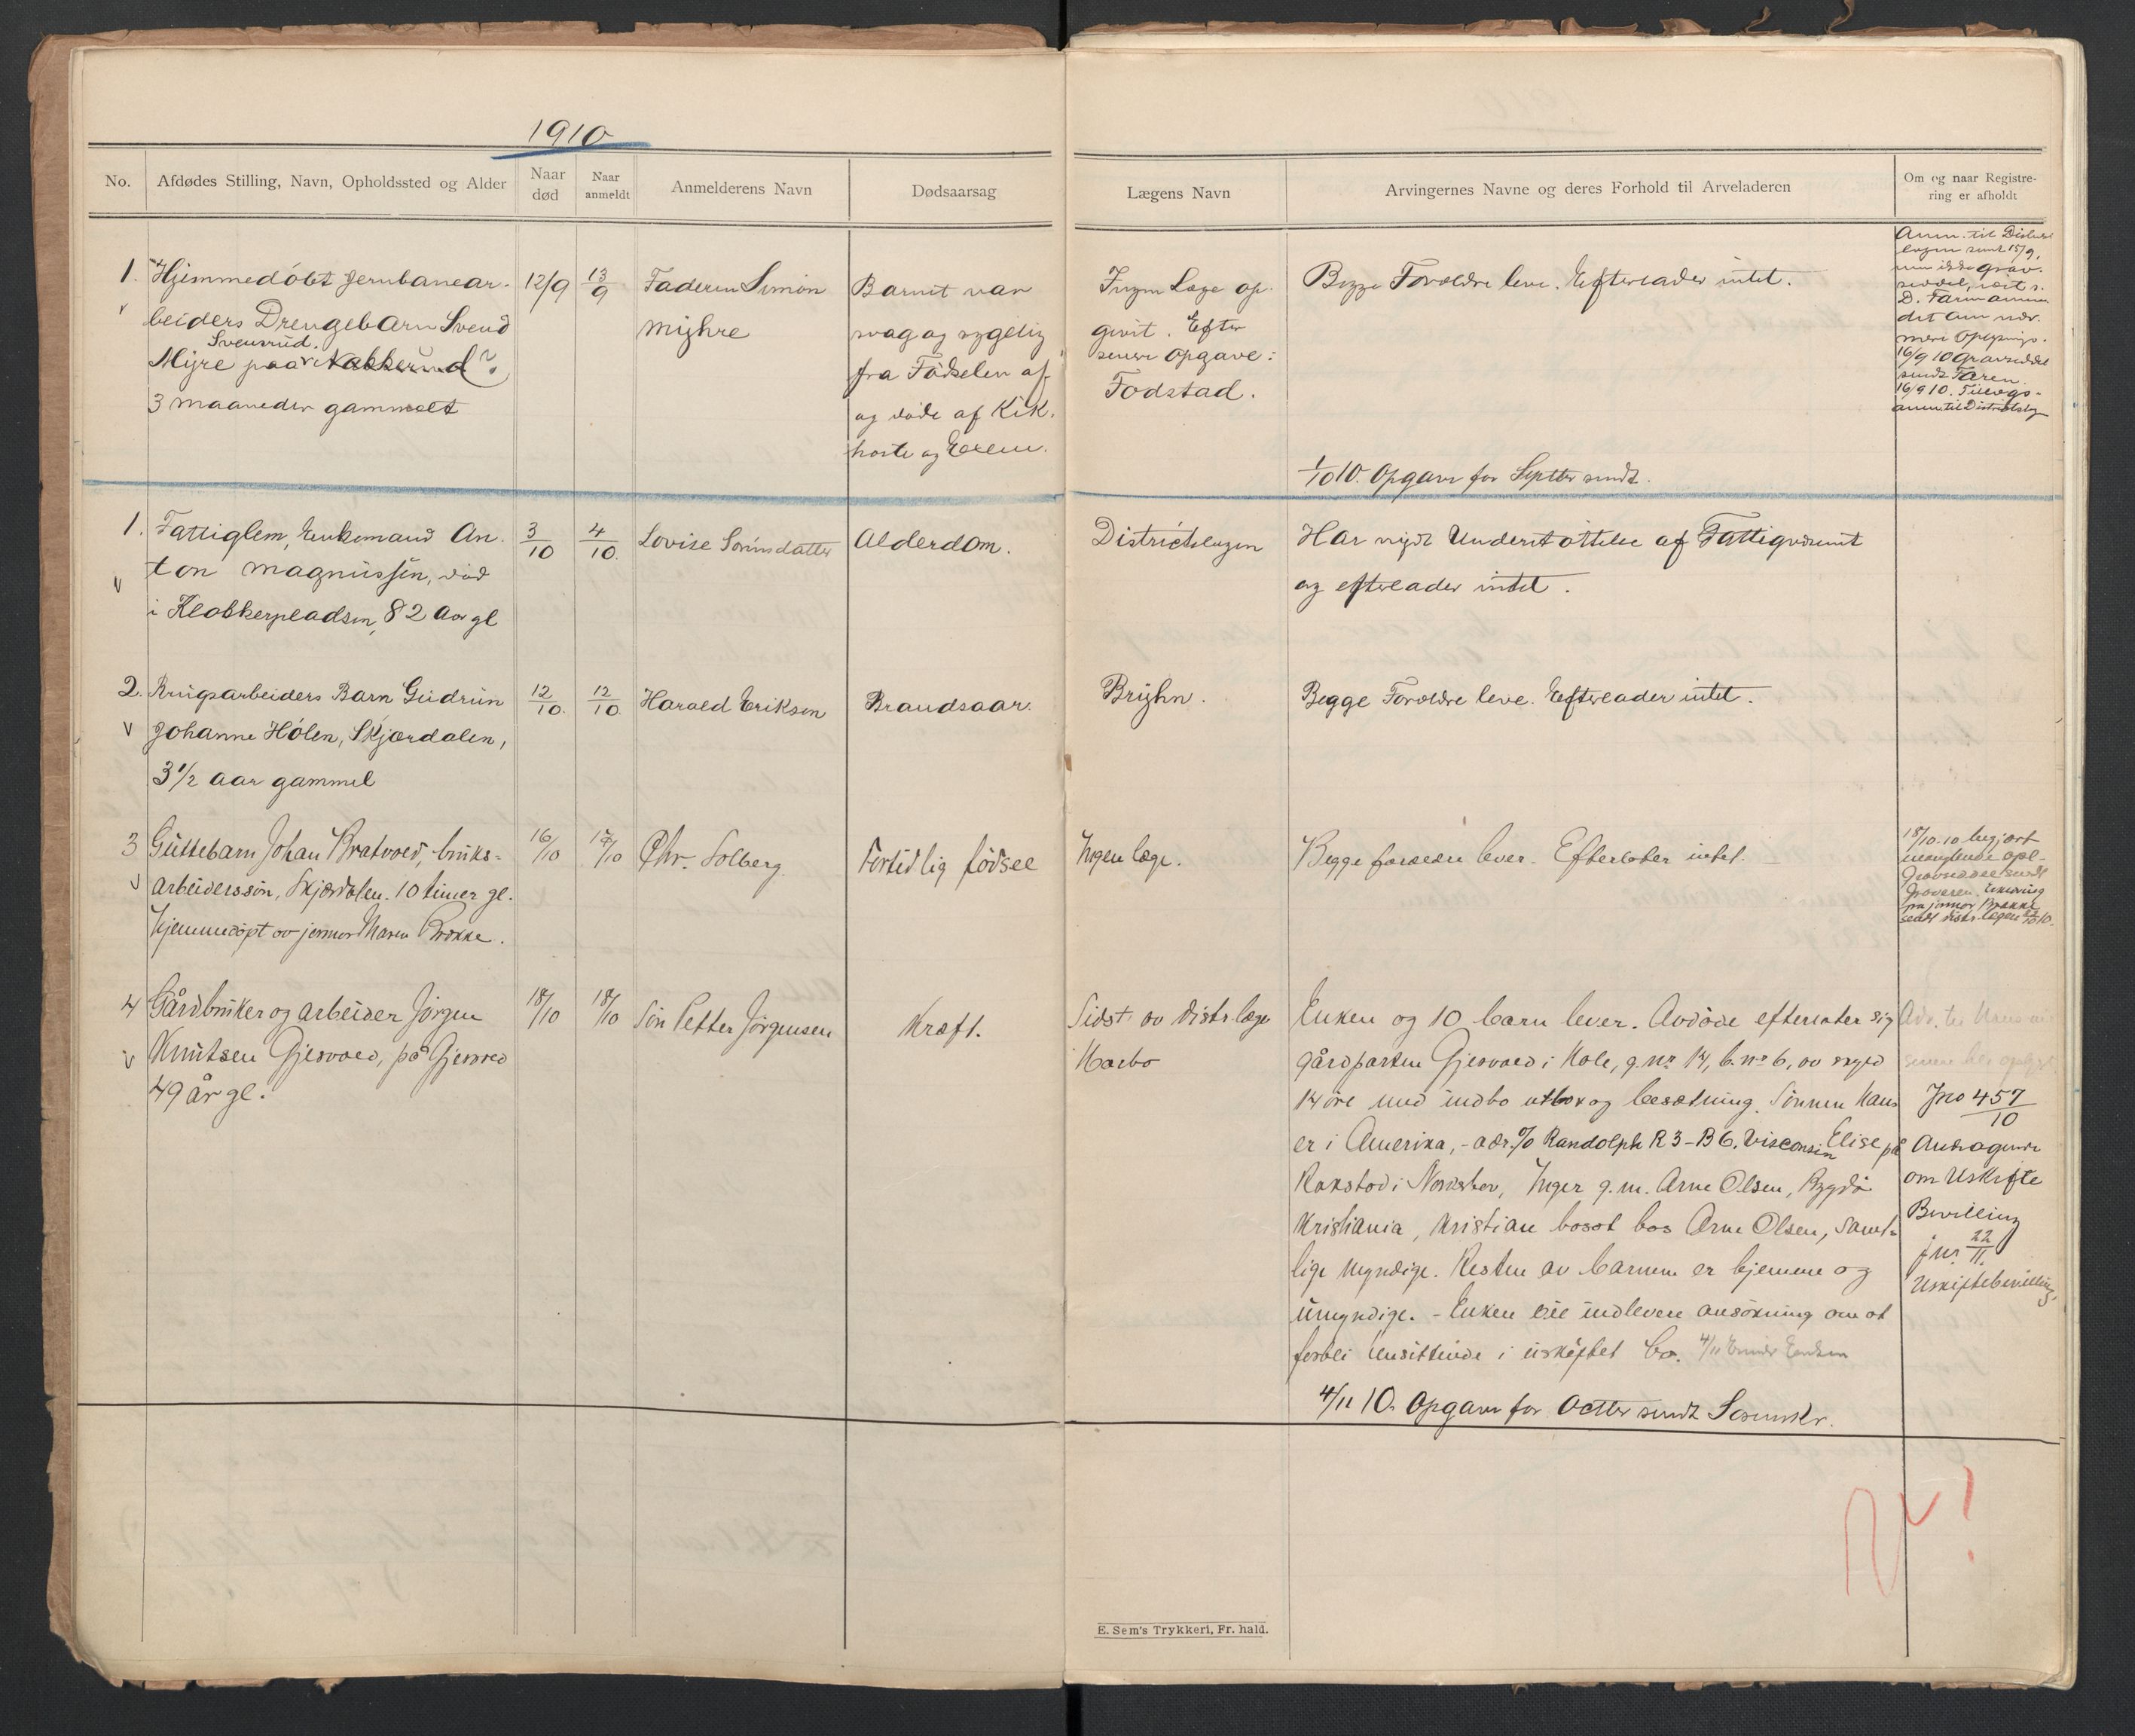 1910
No.
Afdødes Stilling, Navn, Opholdssted og Alder
Naar død
Naar anmeldt
Anmelderens Navn
Dødsaarsag
Lægens Navn
Arvingernes Navne og deres Forhold til Arveladeren
Om og naar Registre-
ring er afholdt
1. Hjemmedøbt Jernbanear-
beiders Drengebarn Svend
Svensrud.
Myre paa Nakkerud?
3 maaneder gammelt
12/9
13/9
Faderen Simon
Myhre
Barnet var
svag og sygelig
fra Fødselen af
og døde af Kik-
hoste og
Ingen Læge op-
givet. Efter
senere Opgave:
Fodstad.
Begge Forældre leve. Efterlader intet.
Anm. til Distrikts
lægen sendt 15/9,
men ikke grav-
seddel,
D. Farm anmo
det om nær-
mere Oplysninger.
16/9 10 Gravseddel
sendt Faren.
16/9 10. Tillægs-
anm til Distriktslæg
1/10 10. Opgave for Septbr sendt.
1. Fattiglem, Enkemand An-
ton Magnussen, død
i Klokkerpladsen, 82 Aar gl
3/10
4/10.
Lovise Sørensdatter
Alderdom.
Districtslægen
Har nydt Understøttelse af Fattigvæsenet
og efterlader intet.
2. Brugsarbeiders Barn Gudrun
Johanne Hólen, Skjærdalen,
3 1/2 aar gammel
12/10.
12/10.
Harald Eriksen
Brandsaar.
Bryhn.
Begge Forældre leve. Efterlader intet.
3 Guttebarn Johan Bratvold, bruks-
arbeiderssøn, Skjærdalen. 10 timer gl.
Hjemmedøpt av jormor Maren Brække.
16/10
17/10
Chr. Solberg
Fortidlig fødsel
Ingen læge.
Begge forældre lever. Efterlater intet.
18/10.10 begjært
manglende opl.
Gravseddel sendt
Graveren.
fra jormor Brække
sendt distr. lægen
4 Gårdbruker og arbeider Jørgen
Knutsen Gjesvold, på Gjesvold
49 år gl.
18/10
18/10
Søn Petter Jørgensen
Kræft.
Sidst av distr. læge
Harbo
Enken og 10 barn lever. Avdøde efterlater sig
gårdparten Gjesvold i Hole, g.nr 14, b.nr 6, av skyld
14 øre med indbo utbo og besætning. Sønnen Hans
er i Amerika, - adr. c/o Randolph R 3 - B 6. Visconsin Elise på
Rakstad i Norderhov, Inger g.m. Arne Olsen, Bygdø
Kristiania, Kristian bosat hos Arne Olsen, samt-
lige myndige. Resten av barnene er hjemme og
umyndige. - Enken vil indlevere ansøkning om at
forbli hensittende i uskiftet bo. 4/11
Jno 457/10
Andragende
om Uskifte
Bevilling
jnr. 22/11.
Uskiftebevilling.
4/11 10. Opgave for Octbr sendt Sorenskr.
E. Sem's Trykkeri, Fr. hald.